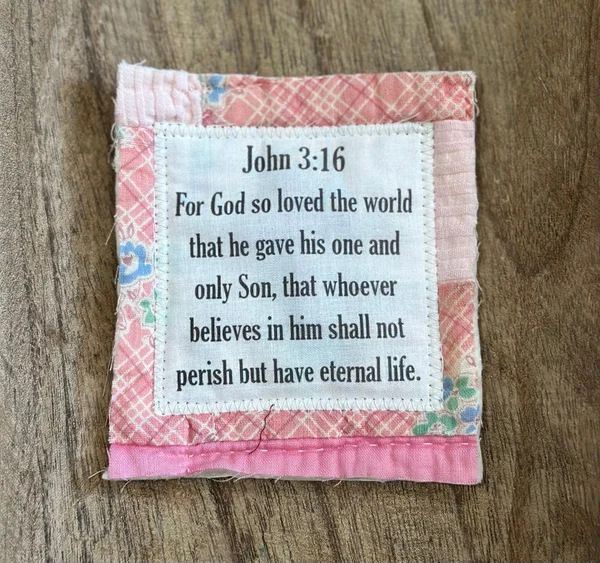 John 3:16
For God so loved the world
that he gave his one and
only Son, that whoever
believes in him shall not
perish but have eternal life.